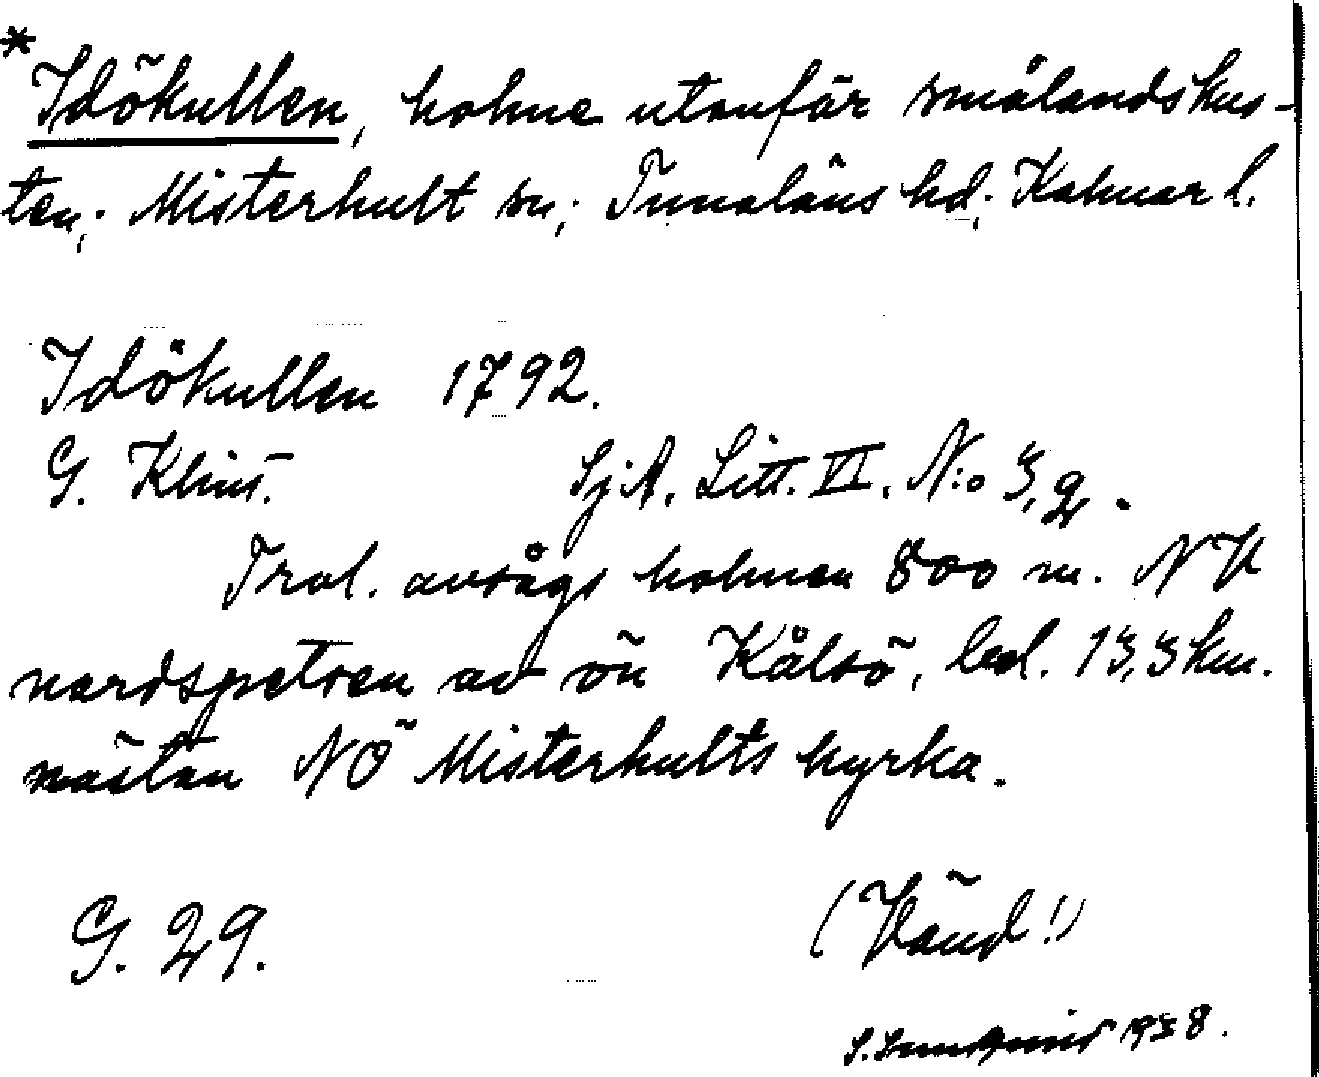 *Idökullen, holme utanför smålandskus-
ten; Misterhult sn; Tunaläns hd; Kalmar l.
Idökullen 1792.
G. Klint. SjA. Litt. VI. N:o 3,2.
Trol. avsågs holmen 800 m. NV
nordspetsen av ön Kålsö, bel. 13,3 km.
nästan NÖ Misterhults kyrka.
G. 29. (Vänd!)
1938.